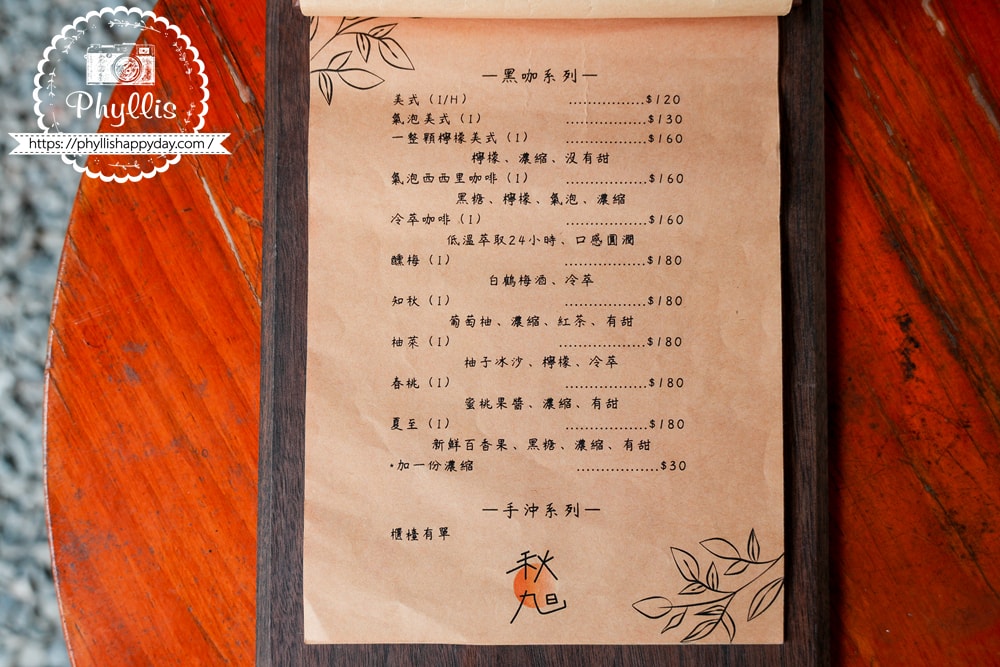 Phyllis
https://phyllishappyday.com/
—黑咖系列—
美式(I/H) ................$120
氣泡美式(I) .................$130
一整顆檸檬美式(I) .................$160
檸檬、濃縮、沒有甜
氣泡西西里咖啡(I) .................$160
黑糖、檸檬、氣泡、濃縮
冷萃咖啡(I) .................$160
低溫萃取24小時、口感圓潤
醺梅(I) .................$180
白鶴梅酒、冷萃
知秋(I) .................$180
葡萄柚、濃縮、紅茶、有甜
柚菉(I) ..................$180
柚子冰沙、檸檬、冷萃
春桃(I) .................$180
蜜桃果醬、濃縮、有甜
夏至(I) .................$180
新鮮百香果、黑糖、濃縮、有甜
*加一份濃縮 .................$30
—手沖系列—
櫃檯有單
秋
旭